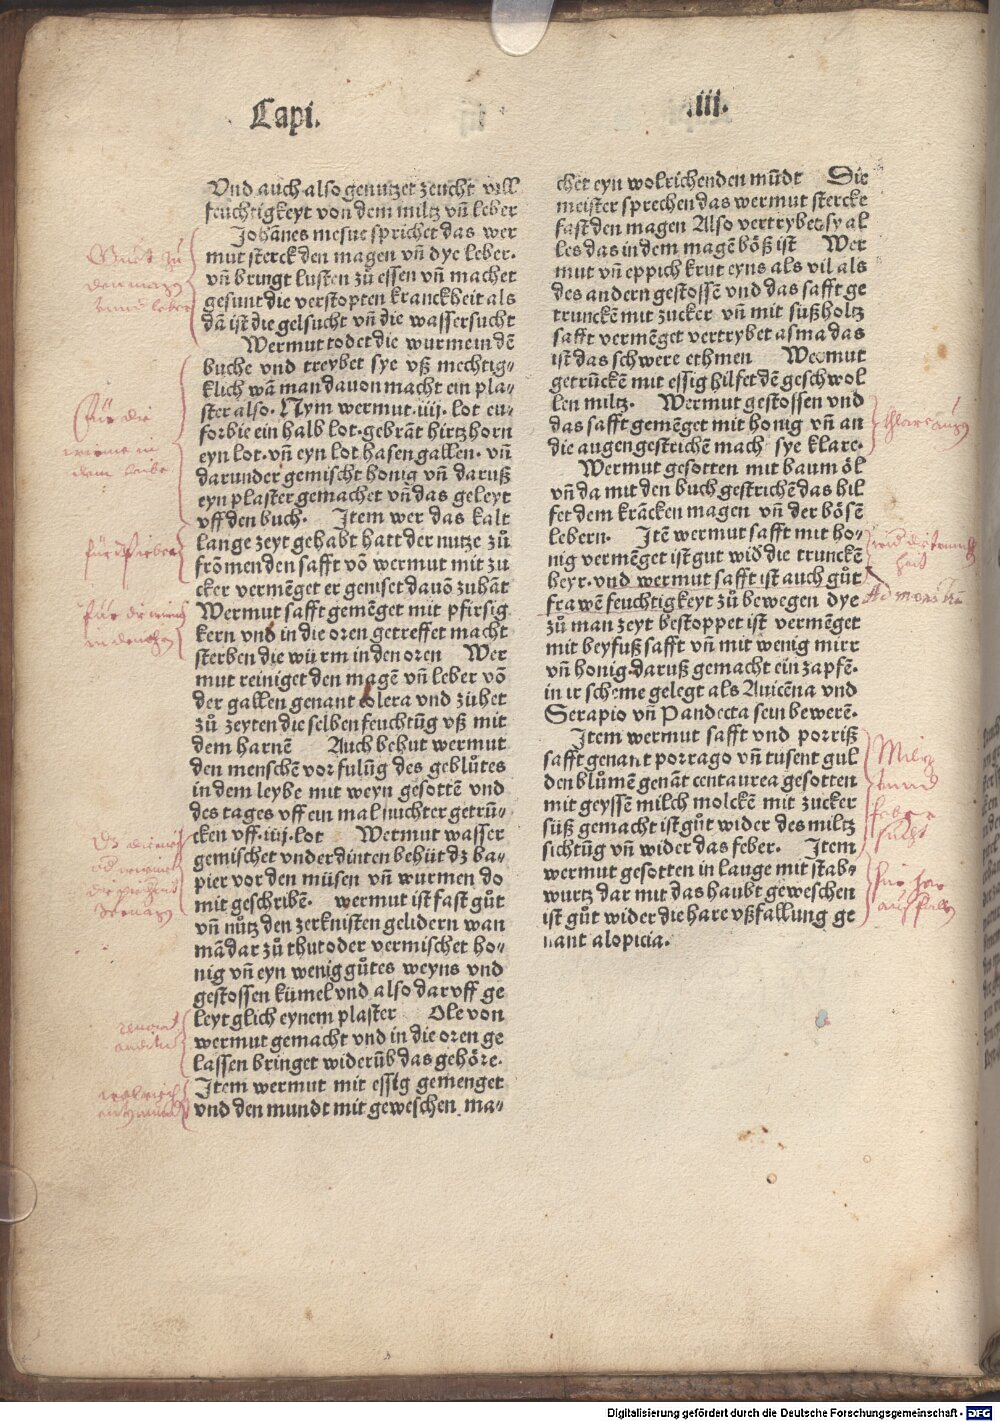 Capi. .iii.
Vnd auch also genutzet zeucht vill
feuchtigkeyt von dem miltz vñ leber
Johãnes mesue sprichet das wer
mut sterck den magen vñ dye leber.
vñ bringt lusten zů essen vñ machet
gesunt die verstopten kranckheit als
dã ist die gelsucht vñ die wassersucht
Wermut todet die wurme in dẽ
buche vnd treybet sye vß mechtig-
klich wã man dauon macht ein pla-
ster also. Nym wermut .iiij. lot eu-
forbie ein halb lot. gebrãt hirtzhorn
eyn lot. vñ eyn lot hasen gallen. vñ
darunder gemischt honig vñ daruß
eyn plaster gemachet vñ das geleyt
vff den buch. Item wer das kalt
lange zeyt gehabt hatt der nutze zů
frõmen den safft võ wermut mit zu
cker vermẽget er geniset dauõ zuhãt
Wermut safft gemẽget mit pfirsig
kern vnd in die oren getreffet macht
sterben die würm in den oren Wer
mut reiniget den magẽ vñ leber võ
der gallen genant colera vnd zuhet
zů zeyten die selben feuchtũg vß mit
dem harnẽ Auch behut wermut
den menschẽ vor fulũg des geblůtes
in dem leybe mit weyn gesottẽ vnd
des tages vff ein mal nuchter getrũ-
cken vff .iiij. lot Wermut wasser
gemischet vnder dinten behüt dz ba-
pier vor den müsen vñ wurmen do
mit geschribẽ. wermut ist fast gůt
vñ nůtz den zerknisten gelidern wan
mã dar zů thut oder vermischet ho-
nig vñ eyn wenig gůtes weyns vnd
gestossen kümel vnd also darvff ge
leyt glich eynem plaster Ole von
wermut gemacht vnd in die oren ge
lassen bringet widerũb das gehöre.
Item wermut mit essig gemenget
vnd den mundt mit geweschen ma-
chet eyn wolrichenden mũdt Die
meister sprechen das wermut stercke
fast den magen Also vertrybet sy al
les das in dem magẽ böß ist Wer
mut vñ eppich krut eyns als vil als
des andern gestossẽ vnd das safft ge
trunckẽ mit zucker vñ mit sůßholtz
safft vermẽget vertrybet asma das
ist das schwere ethmen Wermut
getrückẽ mit essig hilfet dẽ geschwol
len miltz. Wermut gestossen vnd
das safft gemẽget mit honig vñ an
die augen gestrichẽ mach sye klare.
Wermut gesotten mit baum öl
vñ da mit den buch gestrichẽ das hil
fet dem krãcken magen vñ der bösẽ
lebern. Itẽ wermut safft mit ho-
nig vermẽget ist gut wid die trunckẽ
heyt. vnd wermut safft ist auch gůt
frawẽ feuchtigkeyt zů bewegen dye
zů man zeyt bestoppet ist vermẽget
mit beyfuß safft vñ mit wenig mirr
vñ honig. daruß gemacht ein zapfẽ.
in ir scheme gelegt als Auicẽna vnd
Serapio vñ Pandecta sein bewerẽ.
Item wermut safft vnd porriß
safft genant porrago vñ tusent gul
den blůmẽ genãt centaurea gesotten
mit geyssẽ milch molckẽ mit zucker
süß gemacht ist gůt wider des miltz
sichtũg vñ wider das feber. Item
wermut gesotten in lauge mit stab-
wurtz dar mit das haubt geweschen
ist gůt wider die hare vßfallung ge
nant alopicia.
Guet zů
den magen
vnnd leber
für die
würme in
dem leibe
für dz Fieber
für die würm
in den ohren
Miltz
vnnd
feber
sucht
für har
auß fallen
Digitalisierung gefördert durch die Deutsche Forschungsgemeinschaft - DFG